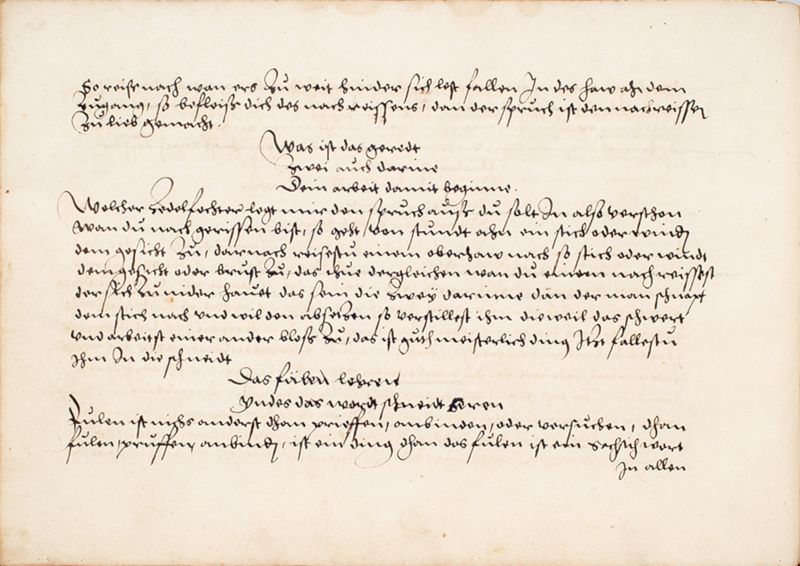 So reiße nach wan ers zu weit hinder sich lest fallen In des haw ahn dem
zugang, so befleiße dich des nachreissens, dan der spruch ist dem nachreissen
zu lieb gemacht.
Was ist das geredt
zwei auch darine
Dein arbeit damit beginne.
Welcher zedelfechter legt mir den spruch auß du solt In also verstehen
wan du nach gerissen bist, so geht von stundt ahn ein stich oder winden
dem gesicht zu, darnach reisestu einem oberhaw nach so stich oder windt
dem gesicht oder brust zu, das thue dergleichen wan du einem nach reissest
der sich zu nider hauet das sein die zwey darinne dan der man schnapt
dem stich nach und wil den absetzen so verstillest ihm dieweil das schwert
und arbeitst einer ander bloß zu, das ist guth meisterlich ding Itzt fallestu
ihm In die schneidt
Das fülen lehren
yndes das wordt schneidt seren
Fulen ist nichs anderst dhan prieffen, anbinden, oder versuchen, dhan
fulen, pruffen, anbinden, ist ein ding dhan das fulen ist ein wort
In allen